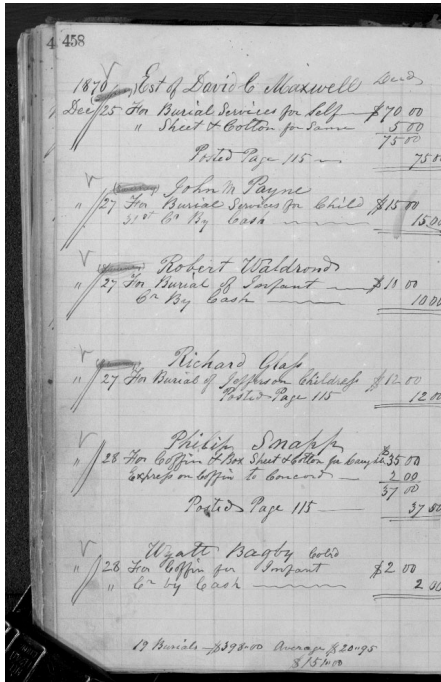 4 458
1870 Est of David C Maxwell Decd
Dec 25 For Burial Services for Self $70.00
" Sheet & Cotton for Same 5.00
75.00
Posted Page 115 75.00
John M Payne
" 27 For Burial Services for Child $15.00
31st Cr By Cash 15.00
Robert Waldrond
" 27 For Burial of Infant $10.00
Cr By Cash 10.00
Richard Glass
" 27 For Burial of Jefferson Childress $12.00
Posted Page 115 12.00
Philip Snapp
" 28 For Coffin & Box Sheet & Cotton for Daught $35.00
Express on Coffin to Concord 2.00
37.00
Posted Page 115 37.00
Wyatt Bagby Cold
" 28 For Coffin for Infant $2.00
" Cr by Cash 2.00
19 Burials $398.00 Average $20.95
$151.00